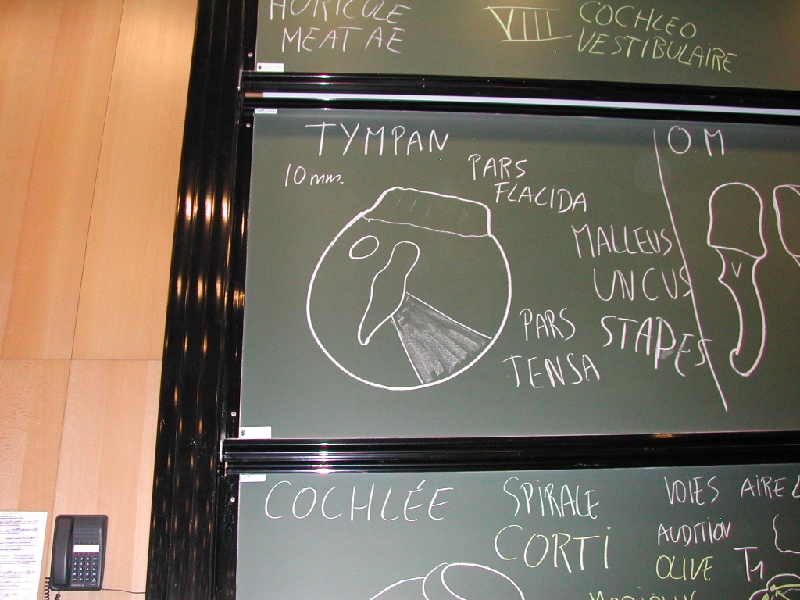 AURICULE
MEAT AE
VIII COCHLEO
VESTIBULAIRE
TYMPAN
10 mm.
PARS
FLACIDA
O.M
MALLEUS
UNCUS
STAPES
V
PARS
TENSA
COCHLÉE
SPIRALE
CORTI
VOIES AIRE
AUDITION
OLIVE